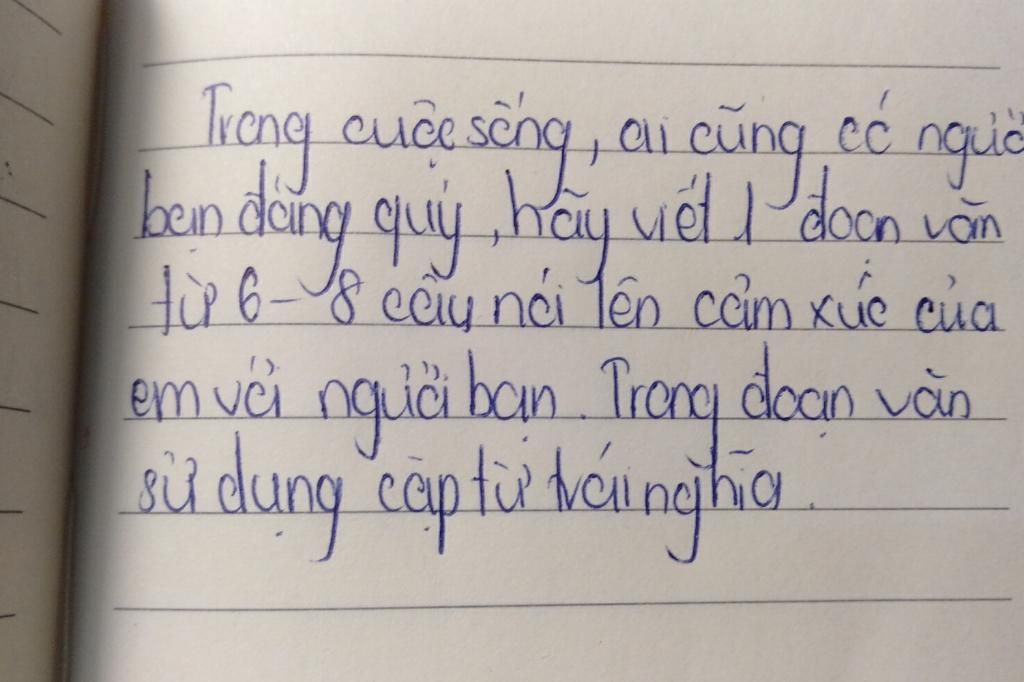 Trong cuộc sống, ai cũng có người
bạn đáng quý, hãy viết 1 đoạn văn
từ 6-8 câu nói lên cảm xúc của
em với người bạn. Trong đoạn văn
sử dụng cặp từ trái nghĩa.